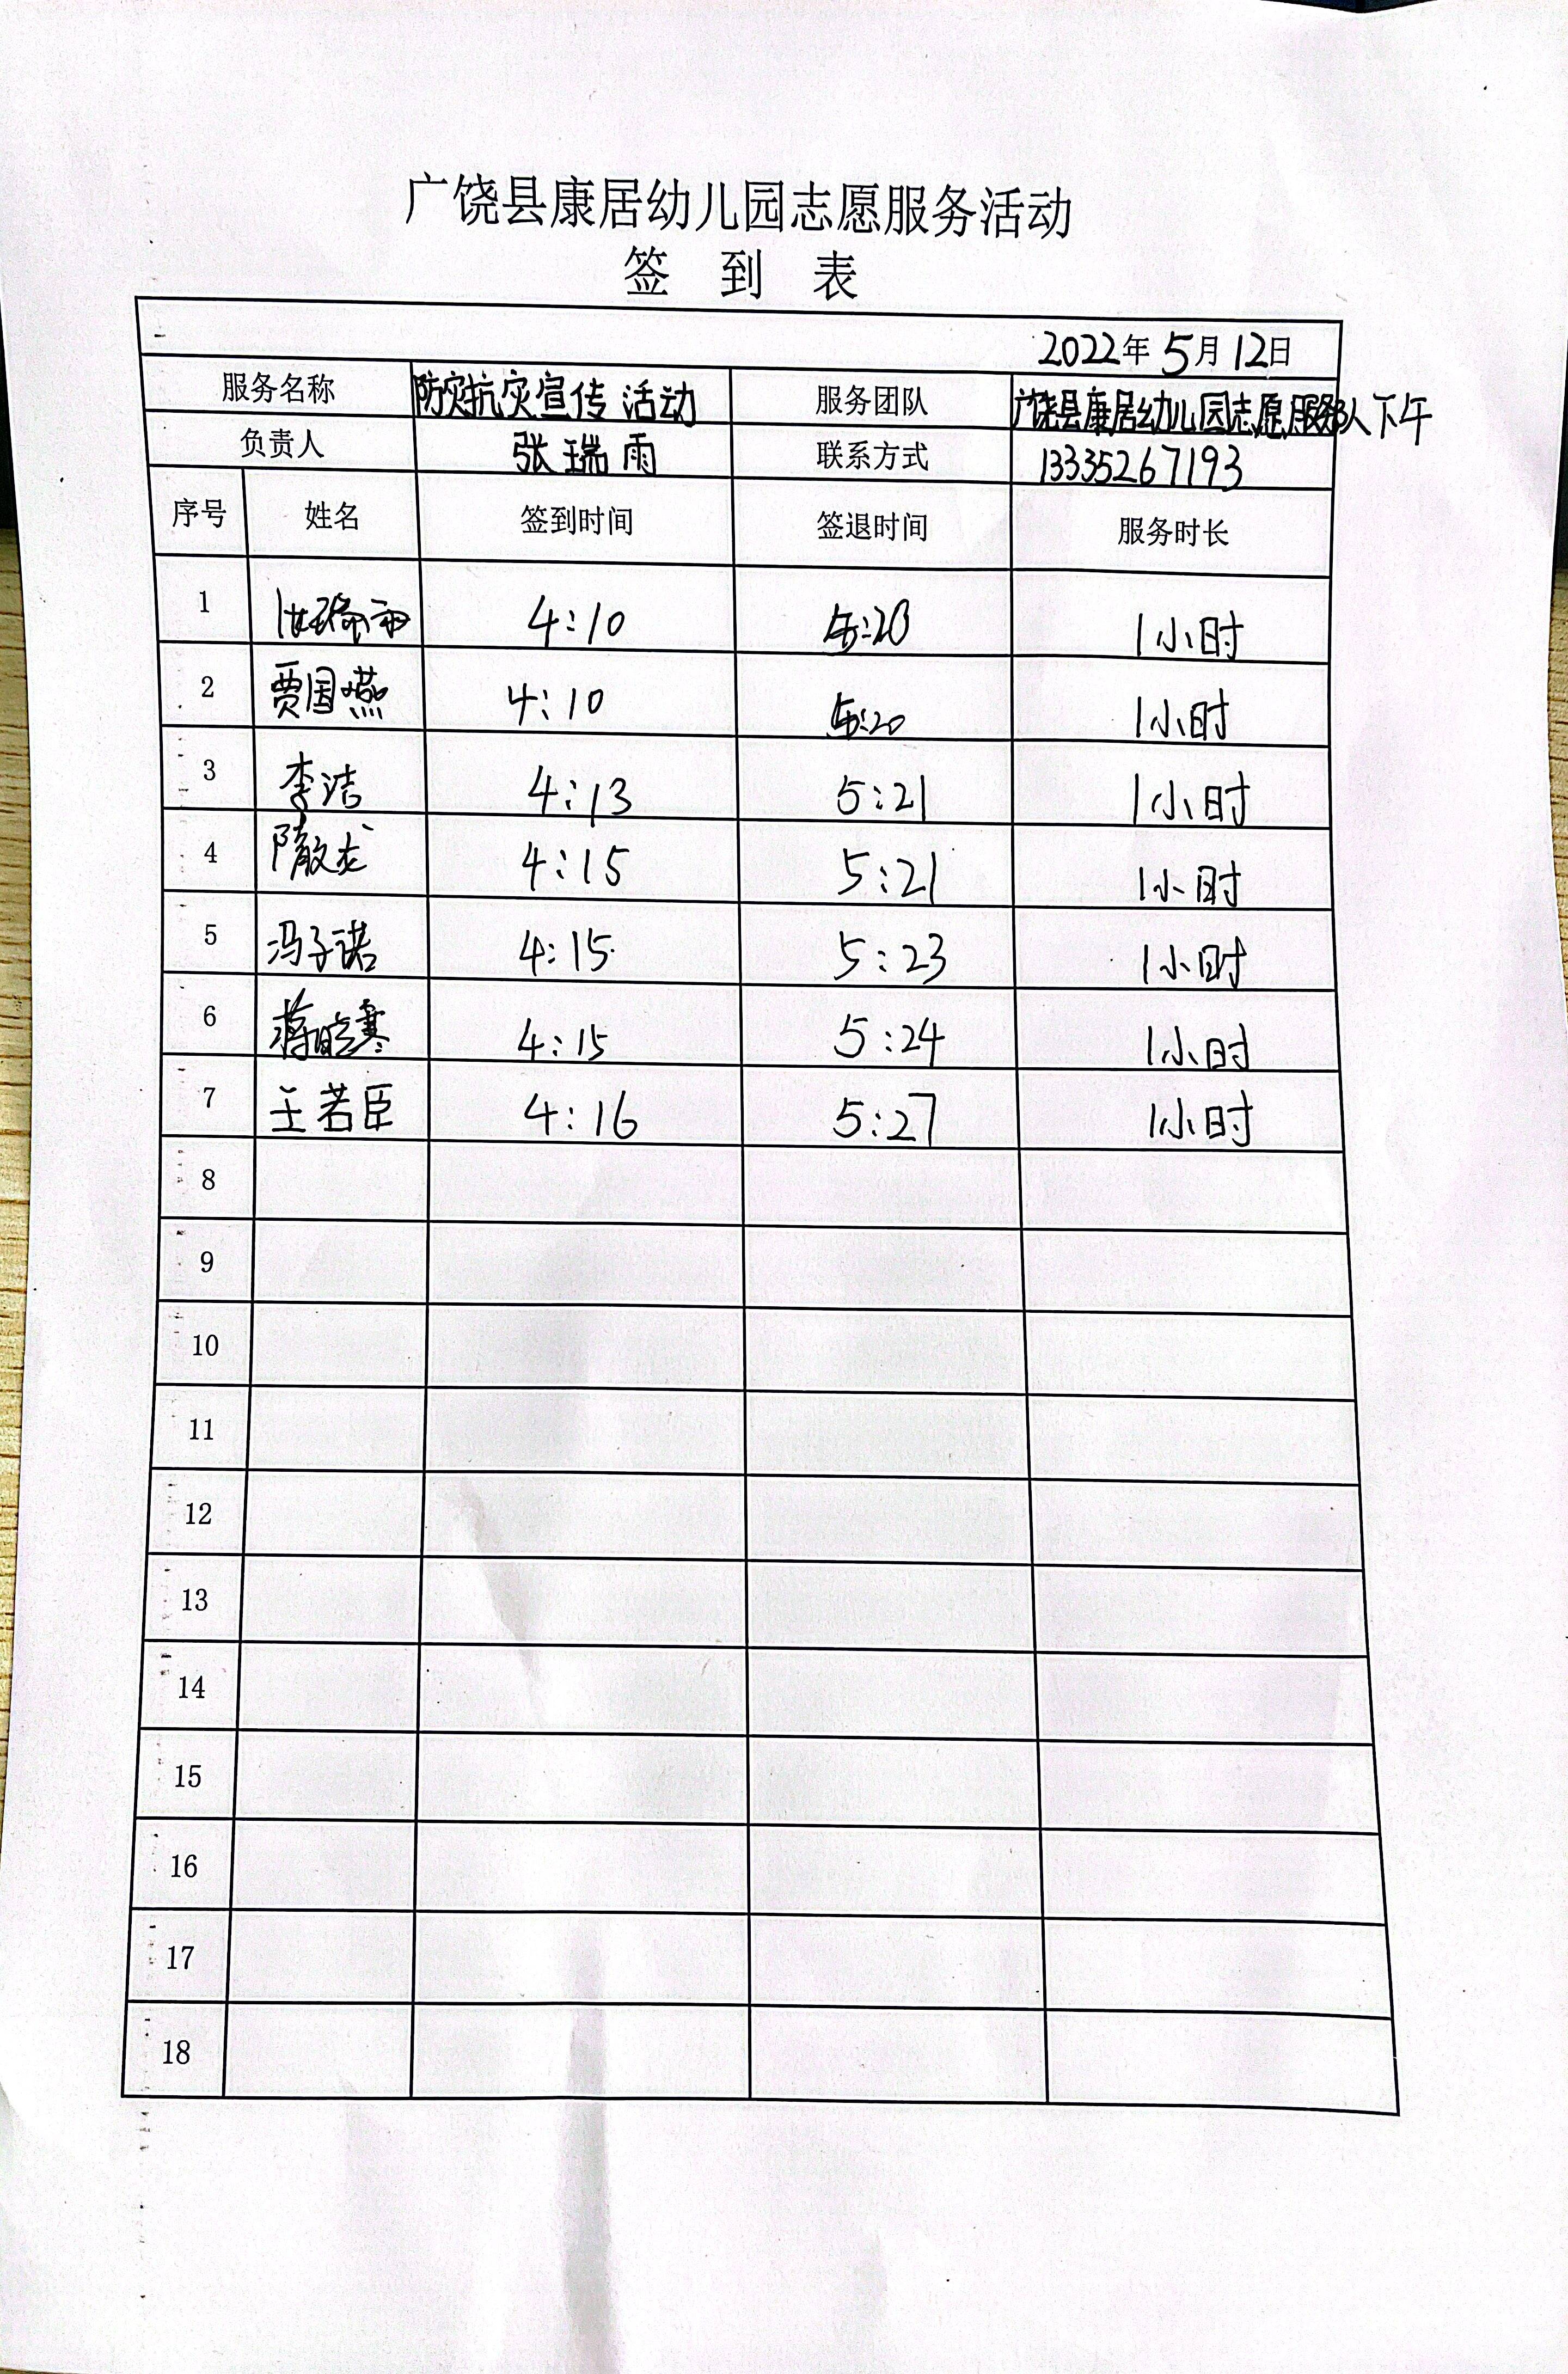 广饶县康居幼儿园志愿服务活动
签 到 表
2022年 5月12日
服务名称 防灾抗灾宣传活动 服务团队 广饶县康居幼儿园志愿服务队 下午
负责人 张瑞雨 联系方式 13335267193
序号 姓名 签到时间 签退时间 服务时长
1 张瑞雨 4:10 5:20 1小时
2 贾国燕 4:10 5:20 1小时
3 李洁 4:13 5:21 1小时
4 4:15 5:21 1小时
5 冯子诺 4:15 5:23 1小时
6 蒋晓寒 4:15 5:24 1小时
7 王若臣 4:16 5:27 1小时
8
9
10
11
12
13
14
15
16
17
18